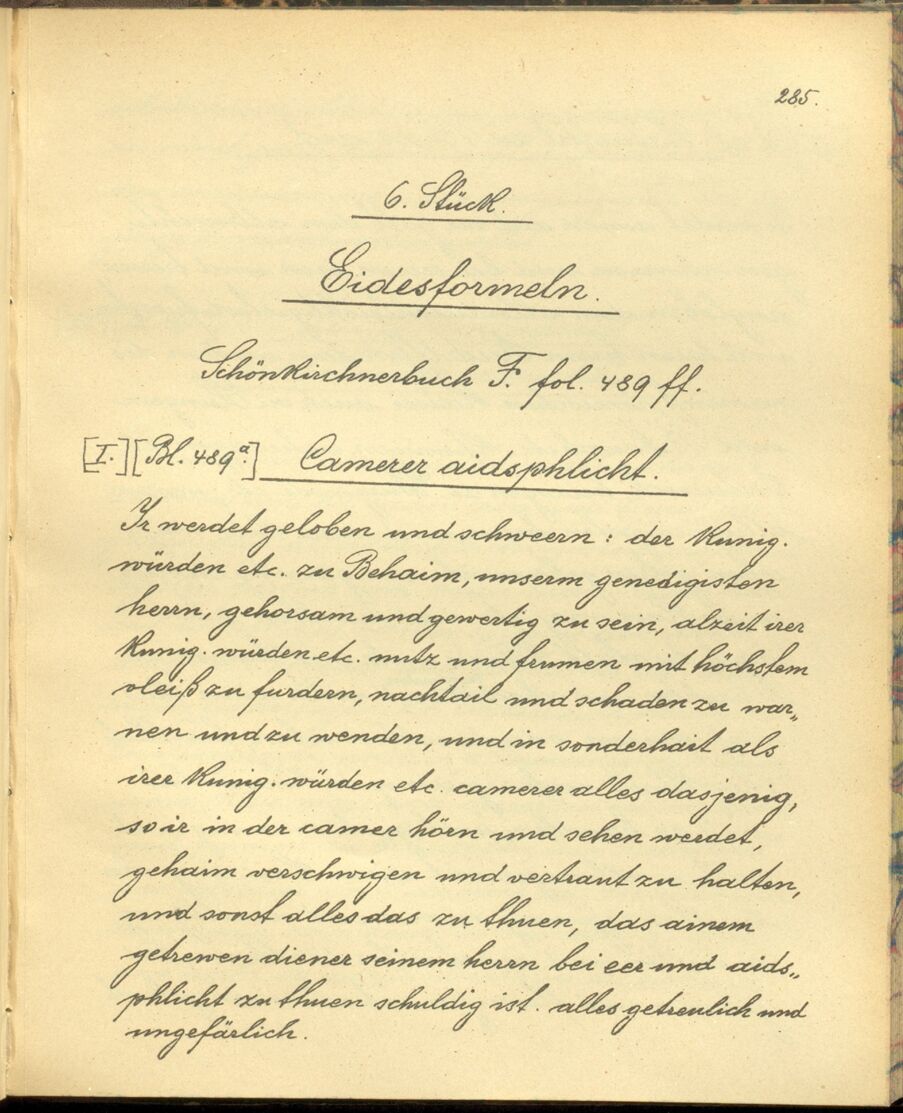 285.
6. Stück.
Eidesformeln.
Schönkirchnerbuch F. fol. 489 ff.
[I.] [Bl. 489a.] Camerer aidsphlicht.
Ir werdet geloben und schweern: der Kunig.
würden etc. zu Behaim, unserm genedigisten
herrn, gehorsam und gewertig zu sein, alzeit irer
Kunig. würden etc. nutz und frumen mit höchstem
vleiß zu furdern, nachtail und schaden zu war„
nen und zu wenden, und in sonderhait als
irer Kunig. würden etc. camerer alles dasjenig,
so ir in der camer hörn und sehen werdet,
gehaim verschwigen und vertraut zu halten,
und sonst alles das zu thuen, das ainem
getrewen diener seinem herrn bei eer und aids„
phlicht zu thuen schuldig ist. alles getreulich und
ungefärlich.